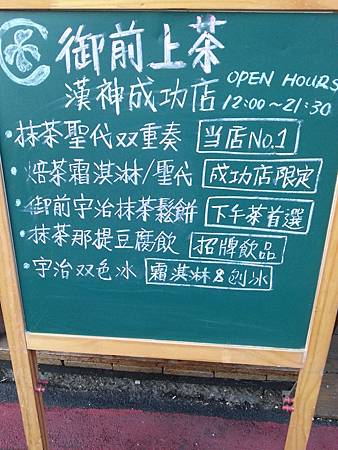 御前上茶
漢神成功店 OPEN HOURS 12:00~21:30
・抹茶聖代双重奏 当店No.1
・焙茶霜淇淋/聖代 成功店限定
・御前宇治抹茶鬆餅 下午茶首選
・抹茶那提豆腐飲 招牌飲品
・宇治双色冰 霜淇淋&刨冰